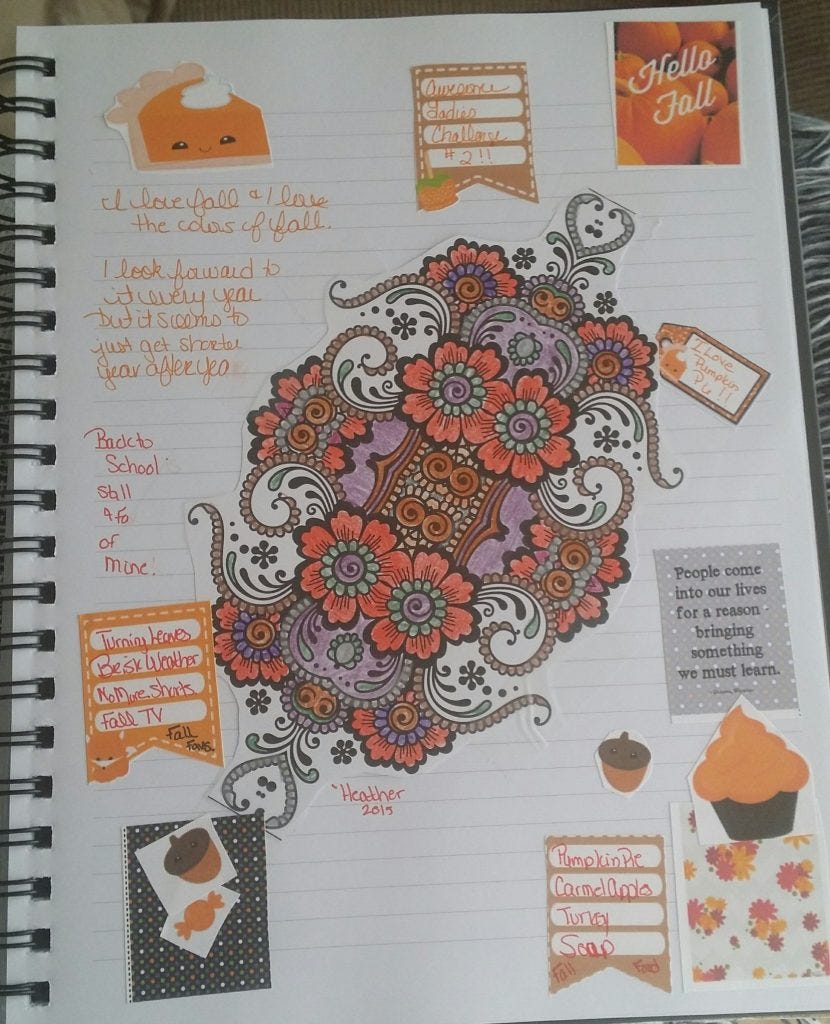 Awesome
Ladies
Challenge
#2!!
Hello
Fall
I love fall & I love
the colors of fall.
I look forward to
it every year
but it seems to
just get shorter
year after yea
I Love
Pumpkin
Pie!!
Back to
School
still
a fa
of
mine!
People come
into our lives
for a reason -
bringing
something
we must learn.
Turning Leaves
Brisk Weather
No More Shorts
Fall TV
Fall
Favs.
Heather
2015
Pumpkin Pie
Carmel Apples
Turkey
Soup
Fall Food